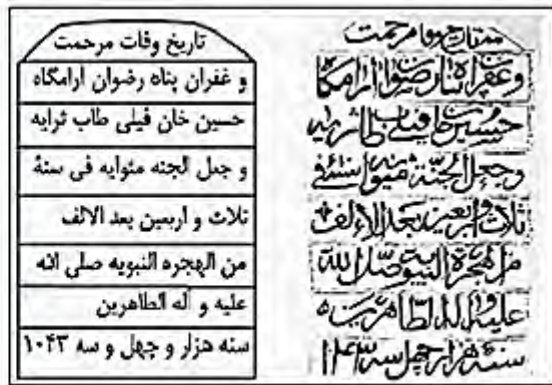 تاریخ وفات مرحمت
و غفران پناه رضوان ارامگاه
حسین خان فیلی طاب ثرایه
و جعل الجنه مثوایه فی سنة
ثلاث و اربعین بعد الالف
من الهجره النبویه صلی الله
علیه و آله الطاهرین
سنه هزار و چهل و سه ۱۰۴۳
وغفران پناه رضوان ارامگاه
حسین خان فیلی طاب ثریه
وجعل الجنة مثویه سنه فی
ثلاث واربعین بعد الالف
من الهجرة النبویه صلی الله
علیه واله الطاهرین
سنه هزار چهل سه